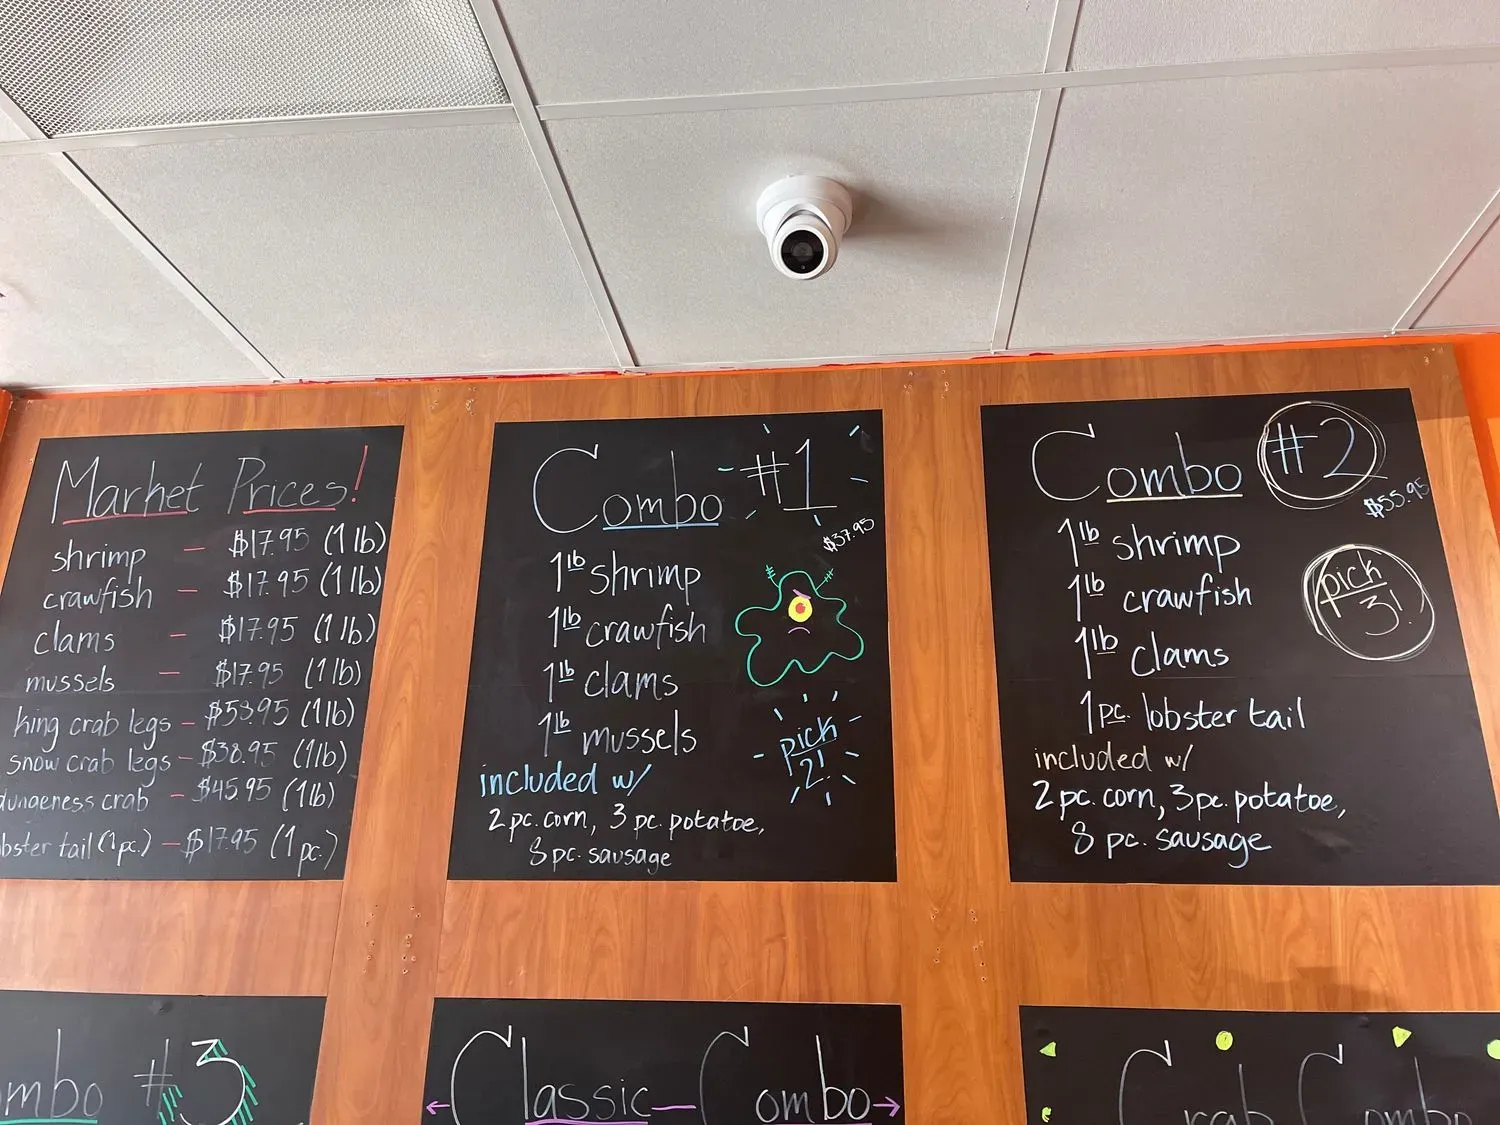 Market Prices!
shrimp - $17.95 (1 lb)
crawfish - $17.95 (1 lb)
clams - $17.95 (1 lb)
mussels - $17.95 (1 lb)
king crab legs - (1 lb)
snow crab legs - $38.95 (1 lb)
dungeness crab - $45.95 (1 lb)
lobster tail (1 pc.) - $17.95 (1 pc.)
Combo #1
$37.95
1 lb shrimp
1 lb crawfish
1 lb clams
1 lb mussels
pick
2!
included w/
2 pc. corn, 3 pc. potatoe,
8 pc. sausage
Combo #2
$55.95
1 lb shrimp
1 lb crawfish
1 lb clams
1 pc. lobster tail
pick
3!
included w/
2 pc. corn, 3 pc. potatoe,
8 pc. sausage
Combo #3
Classic Combo
Crab Combo